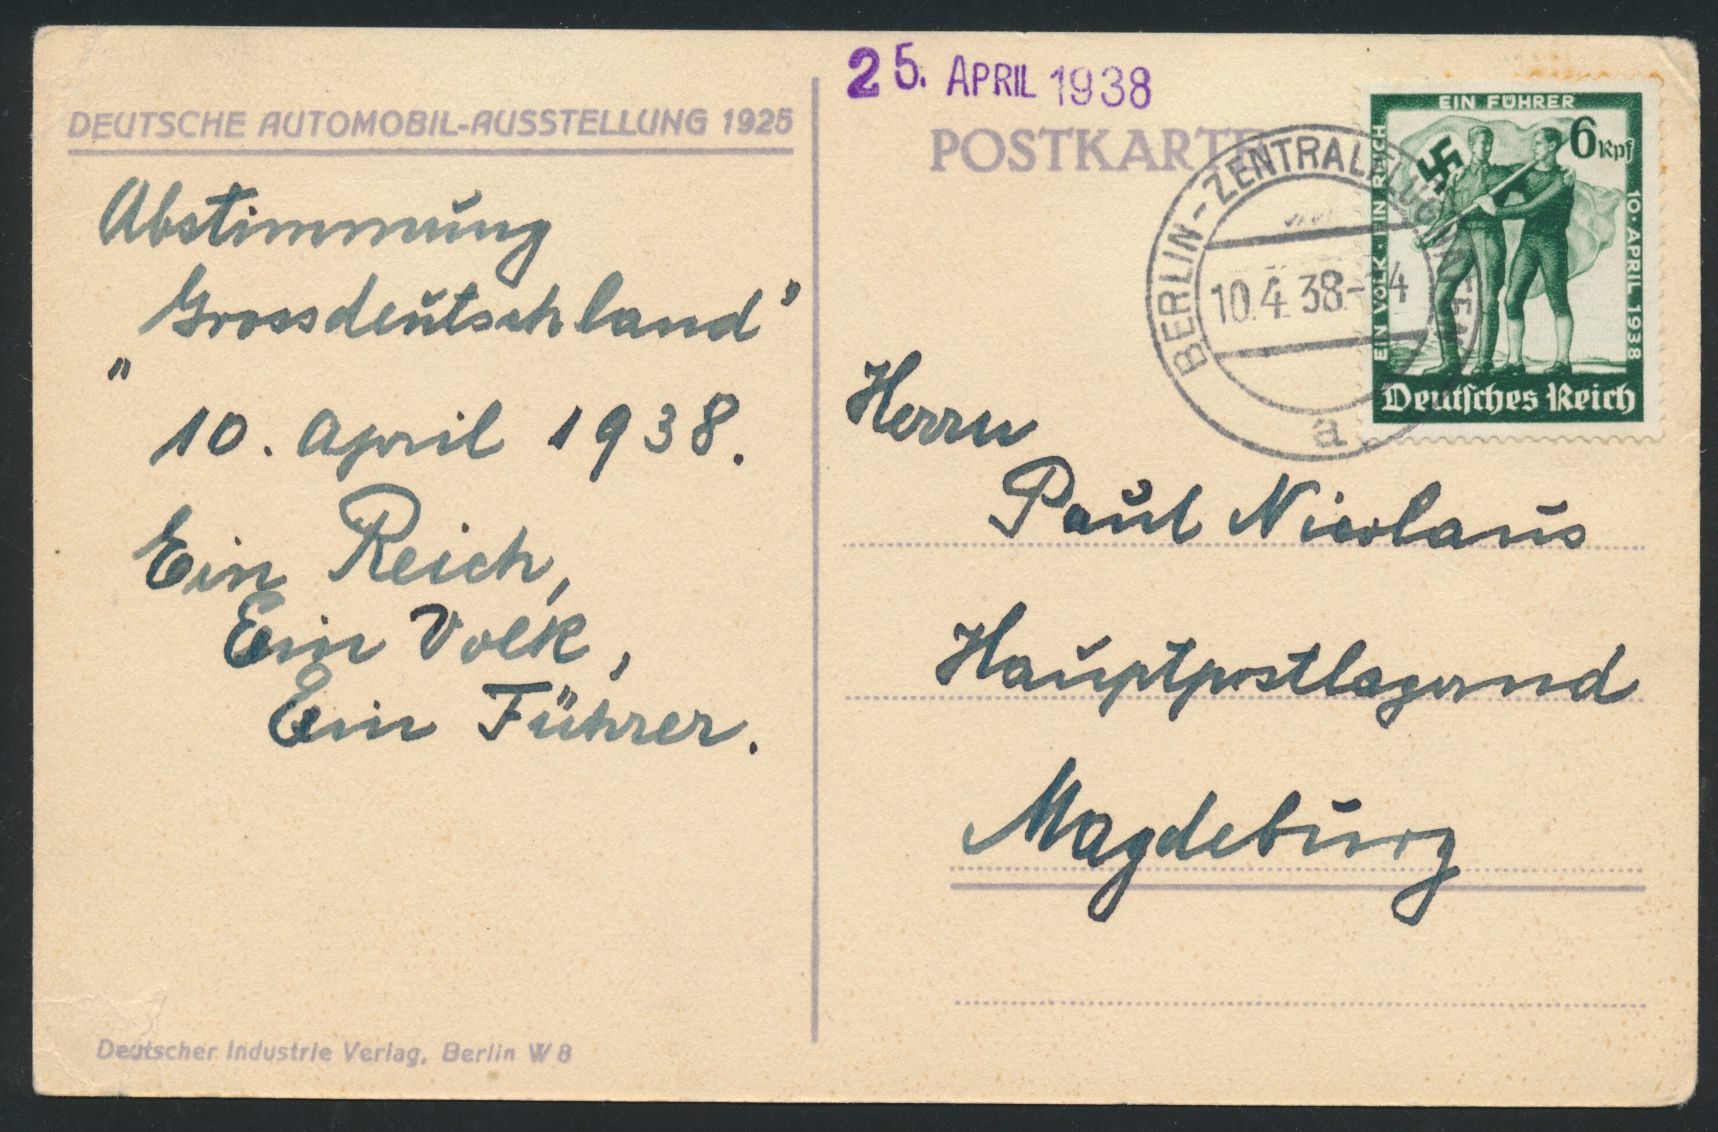 DEUTSCHE AUTOMOBIL-AUSSTELLUNG 1925
Abstimmung
Grossdeutschland"
"
10. April 1938.
Ein Reich,
Ein Volk,
Ein Führer.
Deutscher Industrie Verlag, Berlin W 8
25. APRIL 1938
POSTKARTE
BERLIN-ZENTRALFLUGHAFEN
10.4.38.-
a
EIN VOLK · EIN REICH
EIN FÜHRER
10. APRIL 1938
6 Rpf
Deutsches Reich
Herrn
Paul Nicolaus
Hauptpostlagernd
Magdeburg